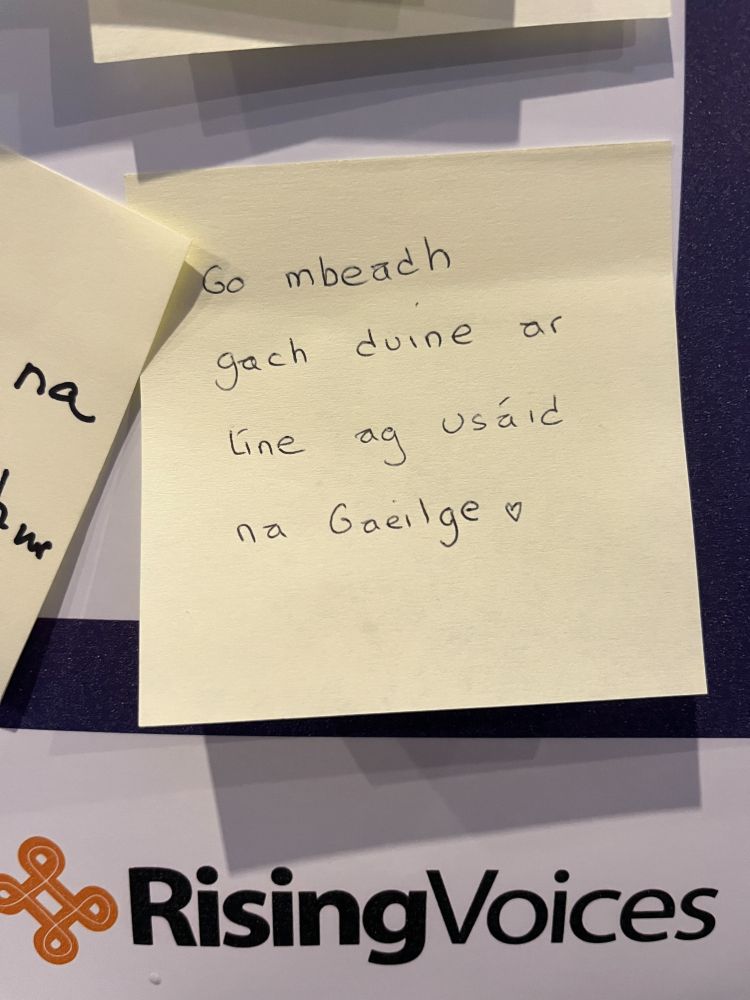 na
Go mbeadh
gach duine ar
líne ag usáid
na Gaeilge ♡
RisingVoices